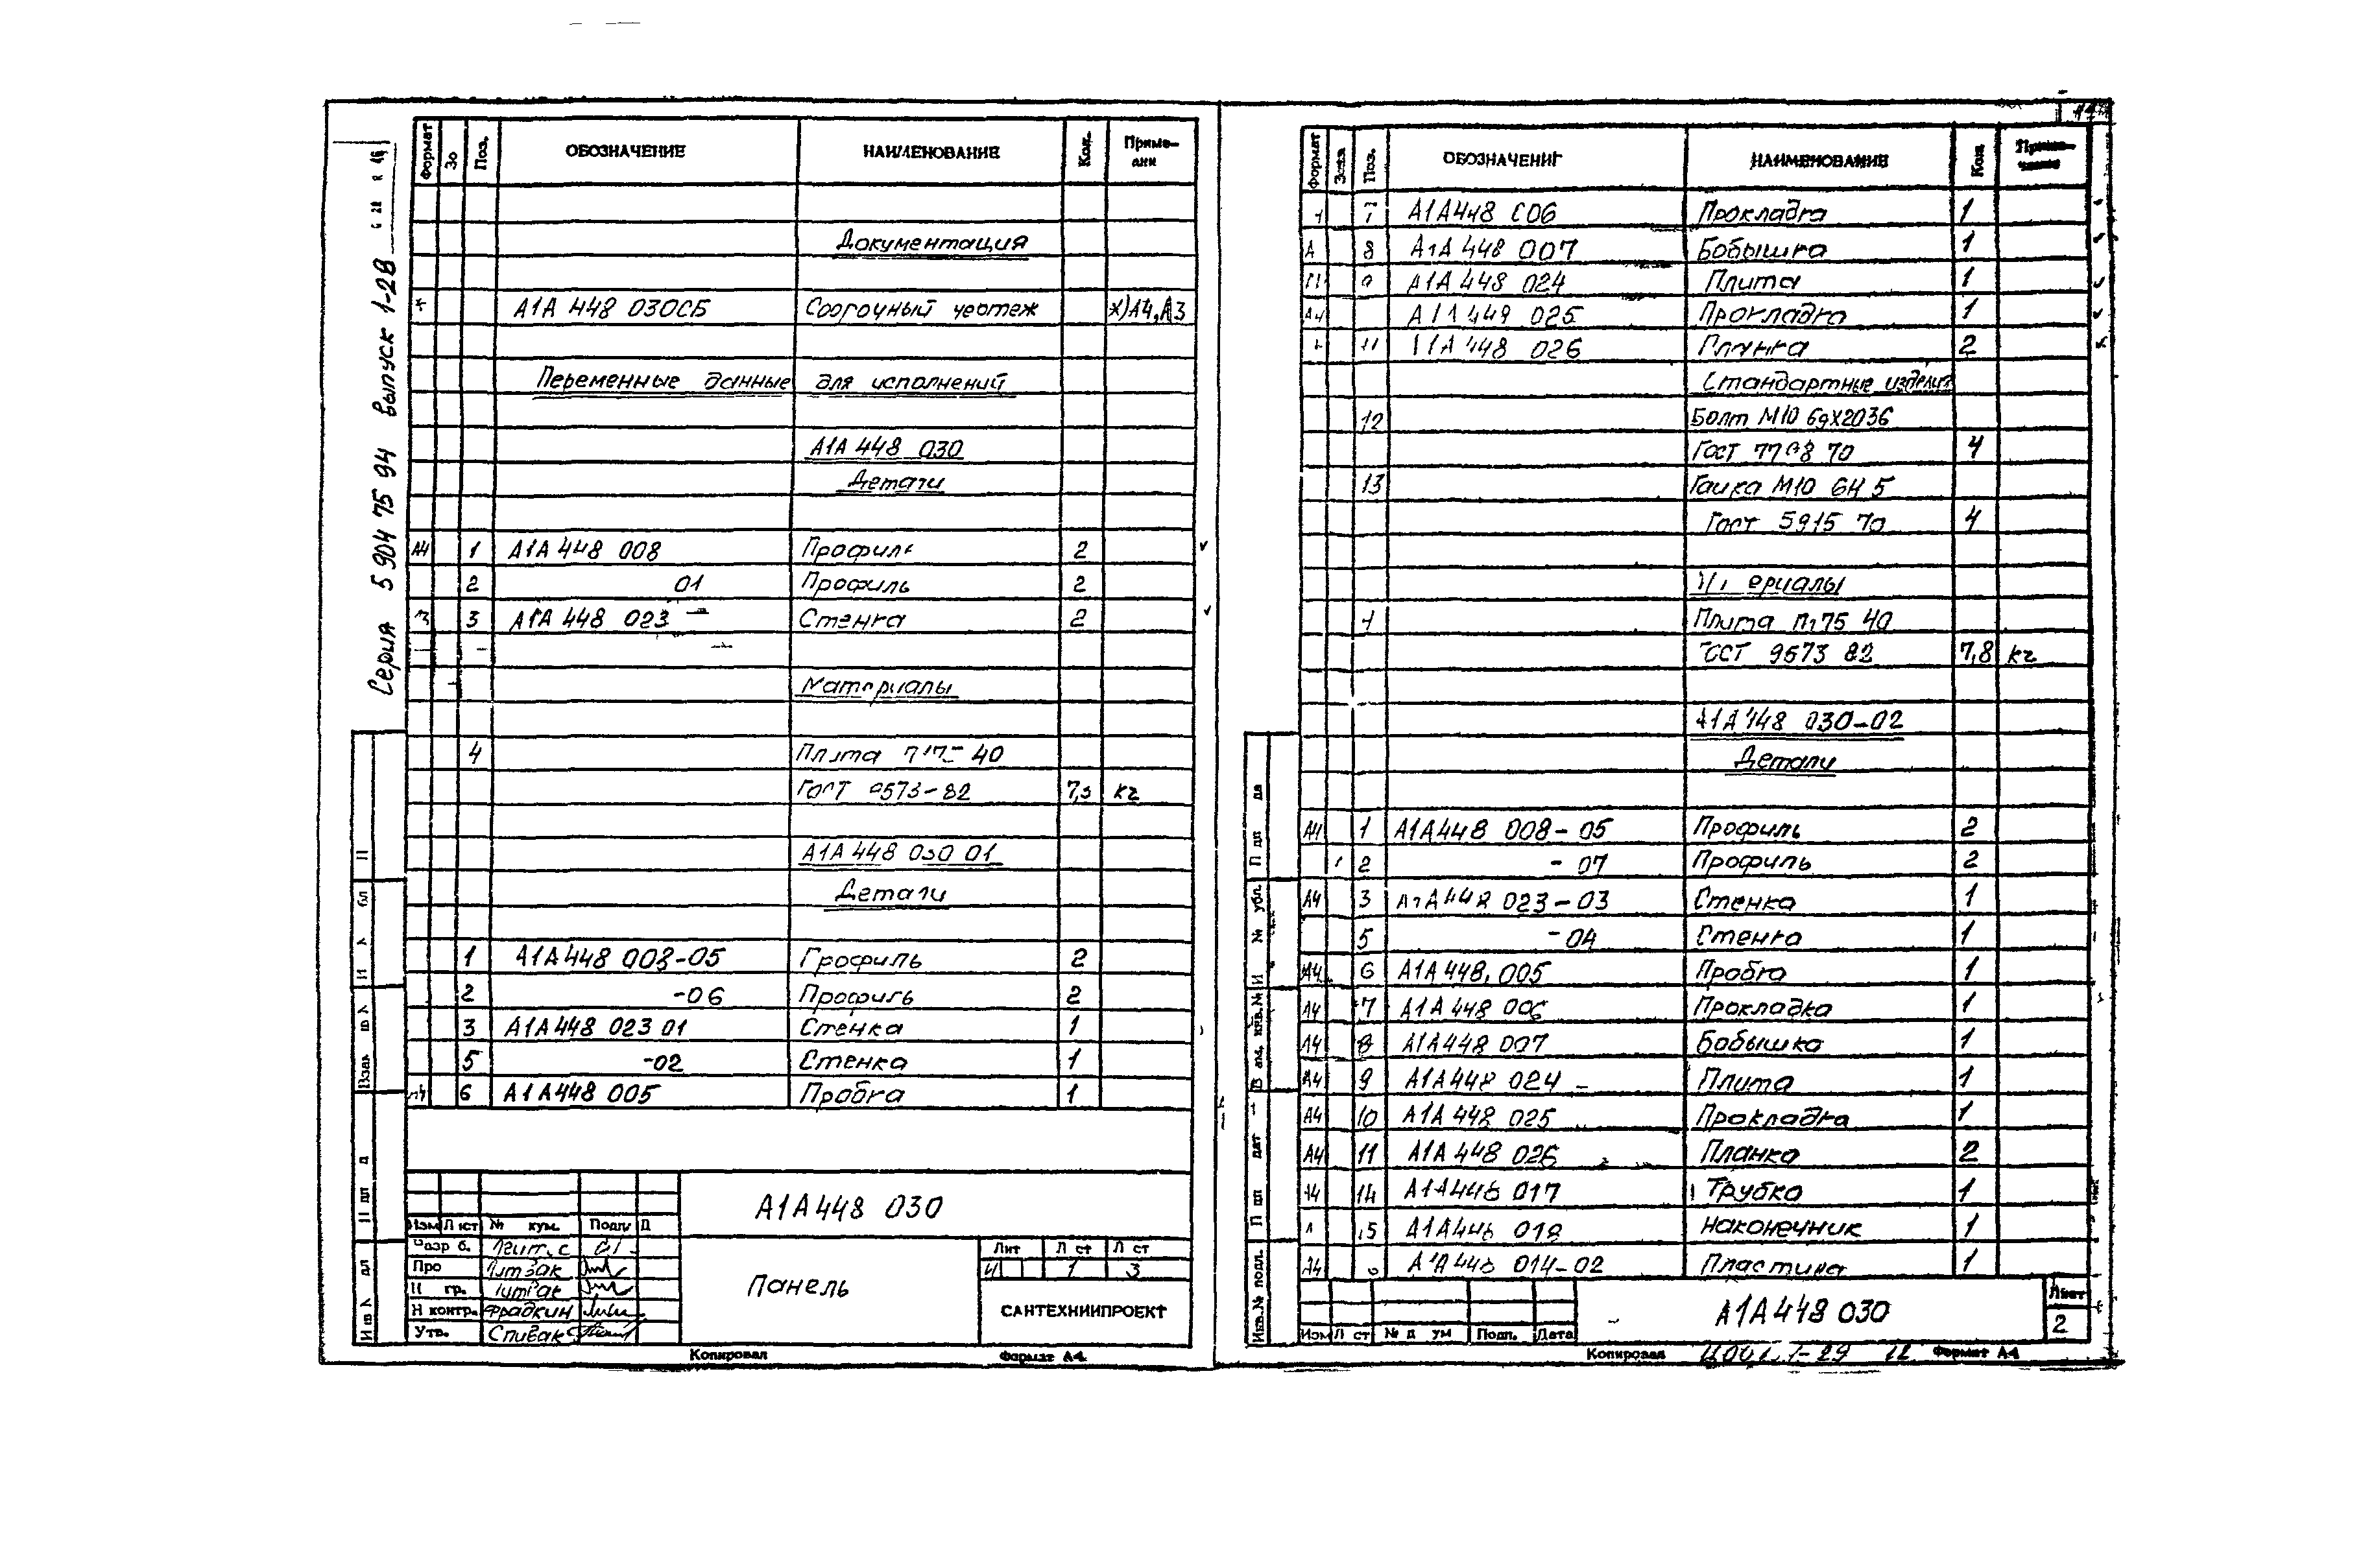 Серия 5 904 75 94 выпуск 1-28
Формат Зо Поз. ОБОЗНАЧЕНИЕ НАИМЕНОВАНИЕ Кол. Приме-
Документация
А1А 448 030СБ чертеж х)А4,А3
Переменные данные для исполнений
А1А 448 030
Детали
А4 1 А1А 448 008 Профиль 2
2 01 Профиль 2
3 А1А 448 023 Стенка 2
Материалы
4 Плита 40
ГОСТ 9573-82 кг
А1А 448 030 01
Детали
1 А1А 448 008-05 Профиль 2
2 -06 Профиль 2
3 А1А 448 023 01 Стенка 1
5 -02 Стенка 1
6 А1А 448 005 Пробка 1
А1А 448 030
Изм Лист № кум. Подп Д
Разр б.
Про
Н гр.
Н контр. Фрадкин
Утв. Спивак
Панель
Лит Л ст Л ст
И 1 3
САНТЕХНИИПРОЕКТ
Копировал Формат А4
Формат Зона Поз. ОБОЗНАЧЕНИЕ НАИМЕНОВАНИЕ Кол Приме-
чание
7 А1А448 006 Прокладка 1
А 8 А1А 448 007 Бобышка 1
9 А1А 448 024 Плита 1
А4 А1А 448 025 Прокладка 1
11 А1А 448 026 Планка 2
Стандартные изделия
12 Болт М10 6gХ2036
Гост 70 4
13 Гайка М10 6Н 5
Гост 5915 70 4
Материалы
Плита П175 40
ГОСТ 9573 82 7,8 кг
А1А 448 030-02
Детали
А4 1 А1А448 008-05 Профиль 2
2 - 07 Профиль 2
А4 3 А1А 448 023-03 Стенка 1
5 -04 Стенка 1
А4 6 А1А 448.005 Пробка 1
А4 7 А1А 448 006 Прокладка 1
А4 8 А1А448 007 Бобышка 1
А4 9 А1А448 024 Плита 1
А4 10 А1А 448 025 Прокладка 1
А4 11 А1А 448 026 Планка 2
А4 14 А1А448 017 Трубка 1
15 Наконечник 1
А4 А1А 448 014-02 Пластина 1
Изм Л ст № д ум Подп. Дата
А1А 448 030
Лист
2
Копировал 12 Формат А4
Инв.№ подл.